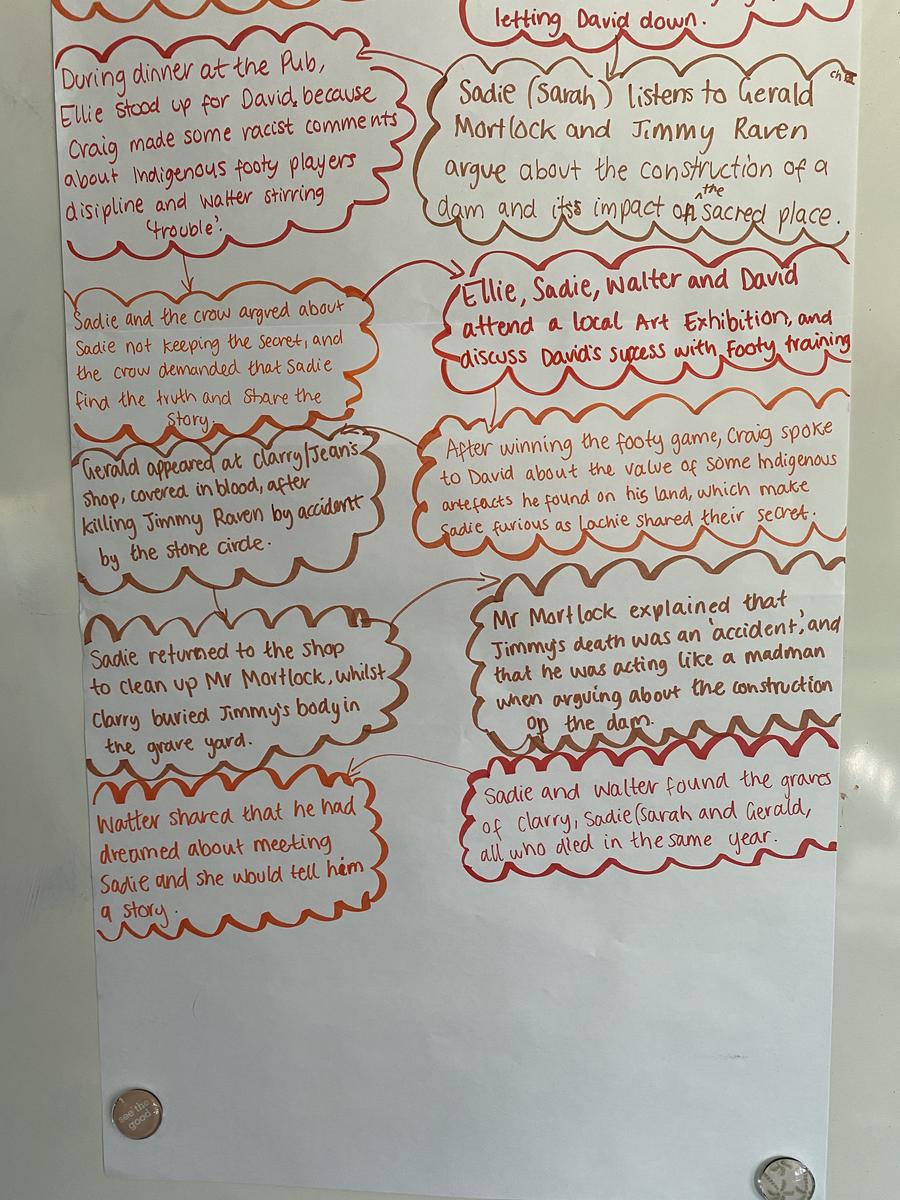 letting David down.
Sadie (Sarah) listens to Gerald
Mortlock and Jimmy Raven
argue about the construction of a
dam and its impact on the sacred place.
During dinner at the Pub,
Ellie stood up for David, because
Craig made some racist comments
about Indigenous footy players
disipline and Walter stirring
'trouble'.
Sadie and the crow argued about
Sadie not keeping the secret, and
the crow demanded that Sadie
find the truth and share the
story.
Ellie, Sadie, Walter and David
attend a local Art Exhibition, and
discuss David's success with footy training
After winning the footy game, Craig spoke
to David about the value of some Indigenous
artefacts he found on his land, which make
Sadie furious as Lachie shared their secret.
Gerald appeared at Clarry/Jean's
shop, covered in blood, after
killing Jimmy Raven by accident
by the stone circle.
Sadie returned to the shop
to clean up Mr Mortlock, whilst
Clarry buried Jimmy's body in
the grave yard.
Mr Mortlock explained that
Jimmy's death was an 'accident', and
that he was acting like a madman
when arguing about the construction
on the dam.
Sadie and Walter found the graves
of Clarry, Sadie (Sarah and Gerald,
all who died in the same year.
Walter shared that he had
dreamed about meeting
Sadie and she would tell him
a story.
see the
good